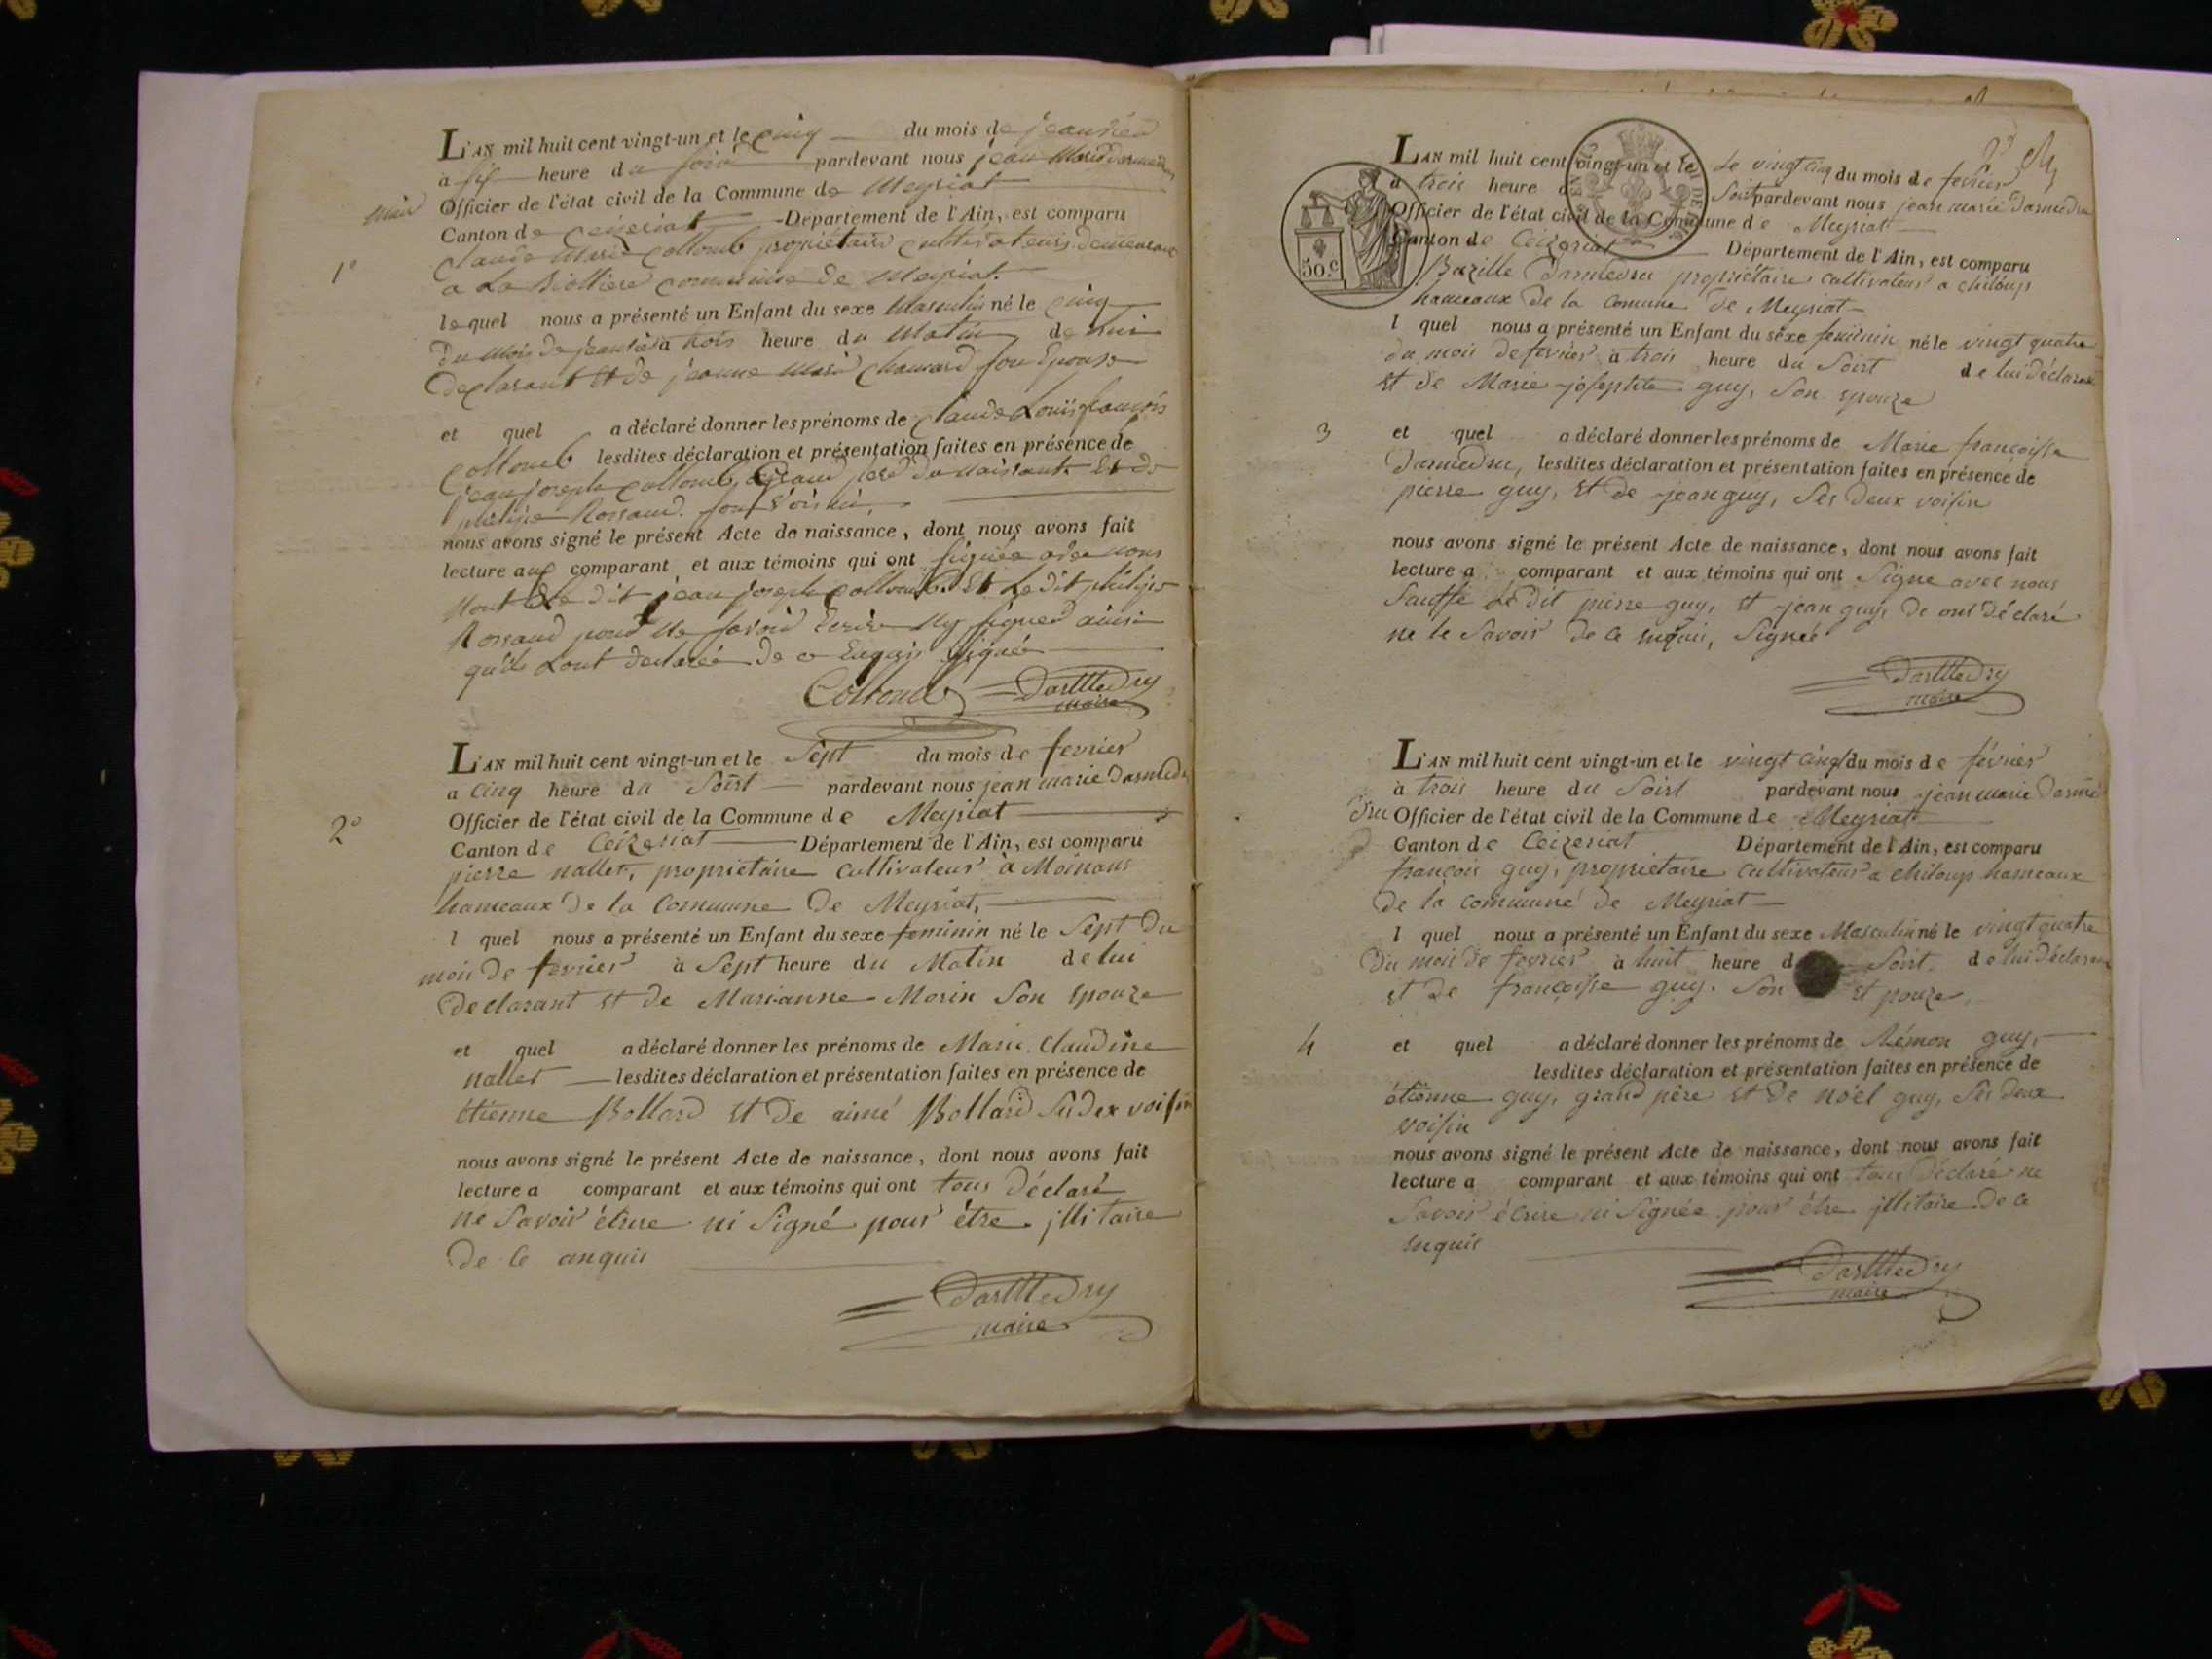 L'AN mil huit cent vingt-un et le cinq du mois de jeanvied
a six heure du soir pardevant nous jean Marie darmedru
maire Officier de l'état civil de la Commune de Meyriat
Canton de ceizeriat Département de l'Ain, est comparu
1°
claude Marie Colloub propriétaire cultivateurs demeurant
a La Biolliere commune de Meyriat.
lequel nous a présenté un Enfant du sexe Masculin né le cinq
du mois de jeanvié à trois heure du Matin de lui
declarant et de jeanne Marie Chanard son Epouse
et quel a déclaré donner les prénoms de claude Louis françois
Colloub lesdites déclaration et présentation faites en présence de
jean joseph colloub, grand pere du naissant Et de
philipe Rossand. son voisin,
nous avons signé le présent Acte de naissance, dont nous avons fait
lecture aux comparant et aux témoins qui ont signée avec nous
dit jean joseph colloub Et Le dit philipe
Rossand pour Ne savoir Ecrire Ny signer ainsi
qu'ils Lont declarée de ce Enquis signée
Colloub Darmedru
maire
L'AN mil huit cent vingt-un et le Sept du mois de fevrier
a cinq heure du Soirt pardevant nous jean marie Darmedru
2°
Officier de l'état civil de la Commune de Meyriat
Canton de Ceizeriat Département de l'Ain, est comparu
pierre nallet, propriétaire cultivateur à Moinans
hameaux de la Commune de Meyriat,
l quel nous a présenté un Enfant du sexe feminin né le Sept Du
mois De fevrier à Sept heure du Matin de lui
Declarant et de Marianne Morin Son Epouze
et quel a déclaré donner les prénoms de Marie Claudine
nallet lesdites déclaration et présentation faites en présence de
étienne Bollard et De aimé Bollard voisin
nous avons signé le présent Acte de naissance, dont nous avons fait
lecture a comparant et aux témoins qui ont tous Déclaré
ne Savoir écrire ni Signé pour être illitaire
De Ce anquis
Darmedru
maire
L'AN mil huit cent vingt-un et le Le vingt cinq du mois de fevrier
à trois heure d Soirt pardevant nous jean marie Darmedru
Officier de l'état civil de la Commune de Meyriat
50.c
Canton de Ceizeriat Département de l'Ain, est comparu
Bazille Darmedru propriétaire cultivateur a chiloup
hameaux De la Comune De Meyriat
l quel nous a présenté un Enfant du sexe feminin né le vingt quatre
du mois de fevrier à trois heure du Soirt de lui déclarant
et de Marie josephte guy, Son epouze
3
et quel a déclaré donner les prénoms de Marie françoisse
Darmedru, lesdites déclaration et présentation faites en présence de
pierre guy, et de jean guy, Ses Deux voisin
nous avons signé le présent Acte de naissance, dont nous avons fait
lecture a comparant et aux témoins qui ont Signe avec nous
Sauffe Le Dit pierre guy, et jean guy, De ont Déclaré
ne le Savoir De Ce enquis, Signée
Darmedru
maire
L'AN mil huit cent vingt-un et le vingt cinq du mois de février
à trois heure du Soirt pardevant nous jean marie Darme
dru Officier de l'état civil de la Commune de Meyriat
Canton de Ceizeriat Département de l'Ain, est comparu
françois guy, propriétaire cultivateur a chiloup hameaux
De la commune de Meyriat
l quel nous a présenté un Enfant du sexe Masculin né le vingt quatre
Du mois De fevrier à huit heure d Soirt de lui déclarant
et De françoisse guy. Son et pouze,
4
et quel a déclaré donner les prénoms de Rémon guy,
lesdites déclaration et présentation faites en présence de
étienne guy, grand père et De noël guy, Ses Deux
voisin
nous avons signé le présent Acte de naissance, dont nous avons fait
lecture a comparant et aux témoins qui ont tous Déclaré ne
Savoir écrire ni Signée pour être illitaire De Ce
enquis
Darmedru
maire